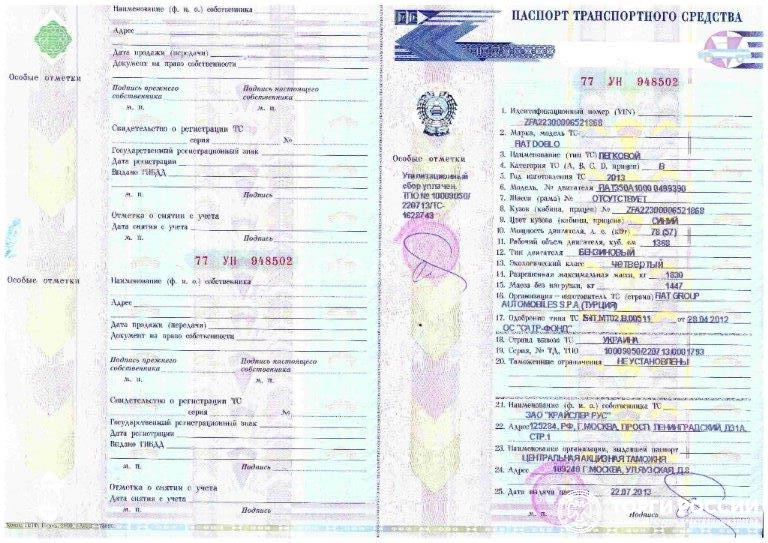 Наименование (ф. и. о.) собственника
Адрес
Дата продажи (передачи)
Документ на право собственности
Подпись прежнего собственника
Подпись настоящего собственника
м. п.
м. п.
Свидетельство о регистрации ТС
серия №
Государственный регистрационный знак
Дата регистрации
Выдано ГИБДД
м. п. Подпись
Отметка о снятии с учета
Дата снятия с учета
м. п. Подпись
Особые отметки
77 УН 948502
Особые отметки
Наименование (ф. и. о.) собственника
Адрес
Дата продажи (передачи)
Документ на право собственности
Подпись прежнего собственника
Подпись настоящего собственника
м. п.
м. п.
Свидетельство о регистрации ТС
серия №
Государственный регистрационный знак
Дата регистрации
Выдано ГИБДД
м. п. Подпись
Отметка о снятии с учета
Дата снятия с учета
м. п. Подпись
ПАСПОРТ ТРАНСПОРТНОГО СРЕДСТВА
77 УН 948502
Особые отметки
Утилизационный
сбор уплачен.
ТПО № 10009050/
220713/ТС-
1628743
1. Идентификационный номер (VIN)
ZFA22300006521868
2. Марка, модель ТС
FIAT DOBLO
3. Наименование (тип ТС) ЛЕГКОВОЙ
4. Категория ТС (А, В, С, D, прицеп) B
5. Год изготовления ТС 2013
6. Модель, № двигателя FIAT350A1000 0489390
7. Шасси (рама) № ОТСУТСТВУЕТ
8. Кузов (кабина, прицеп) № ZFA22300006521868
9. Цвет кузова (кабины, прицепа) СИНИЙ
10. Мощность двигателя, л. с. (кВт) 78 (57)
11. Рабочий объем двигателя, куб. см 1368
12. Тип двигателя БЕНЗИНОВЫЙ
13. Экологический класс четвертый
14. Разрешенная максимальная масса, кг 1830
15. Масса без нагрузки, кг 1447
16. Организация – изготовитель ТС (страна) FIAT GROUP
AUTOMOBILES S.P.A. (ТУРЦИЯ)
17. Одобрение типа ТС E-IT.MT02.B.00511 от 28.04.2012
ОС "САТР-ФОНД"
18. Страна вывоза ТС УКРАИНА
19. Серия, № ТД, ТПО 10009050/220713/0001793
20. Таможенные ограничения НЕ УСТАНОВЛЕНЫ
21. Наименование (ф. и. о.) собственника ТС
ЗАО "КРАЙСЛЕР РУС"
22. Адрес 125284, РФ, Г.МОСКВА, ПРОСП. ЛЕНИНГРАДСКИЙ, Д31А,
СТР.1
23. Наименование организации, выдавшей паспорт
ЦЕНТРАЛЬНАЯ АКЦИЗНАЯ ТАМОЖНЯ
24. Адрес 109240 Г.МОСКВА, УЛ.ЯУЗСКАЯ, Д.8
25. Дата выдачи паспорта 22.07.2013
м. п. Подпись